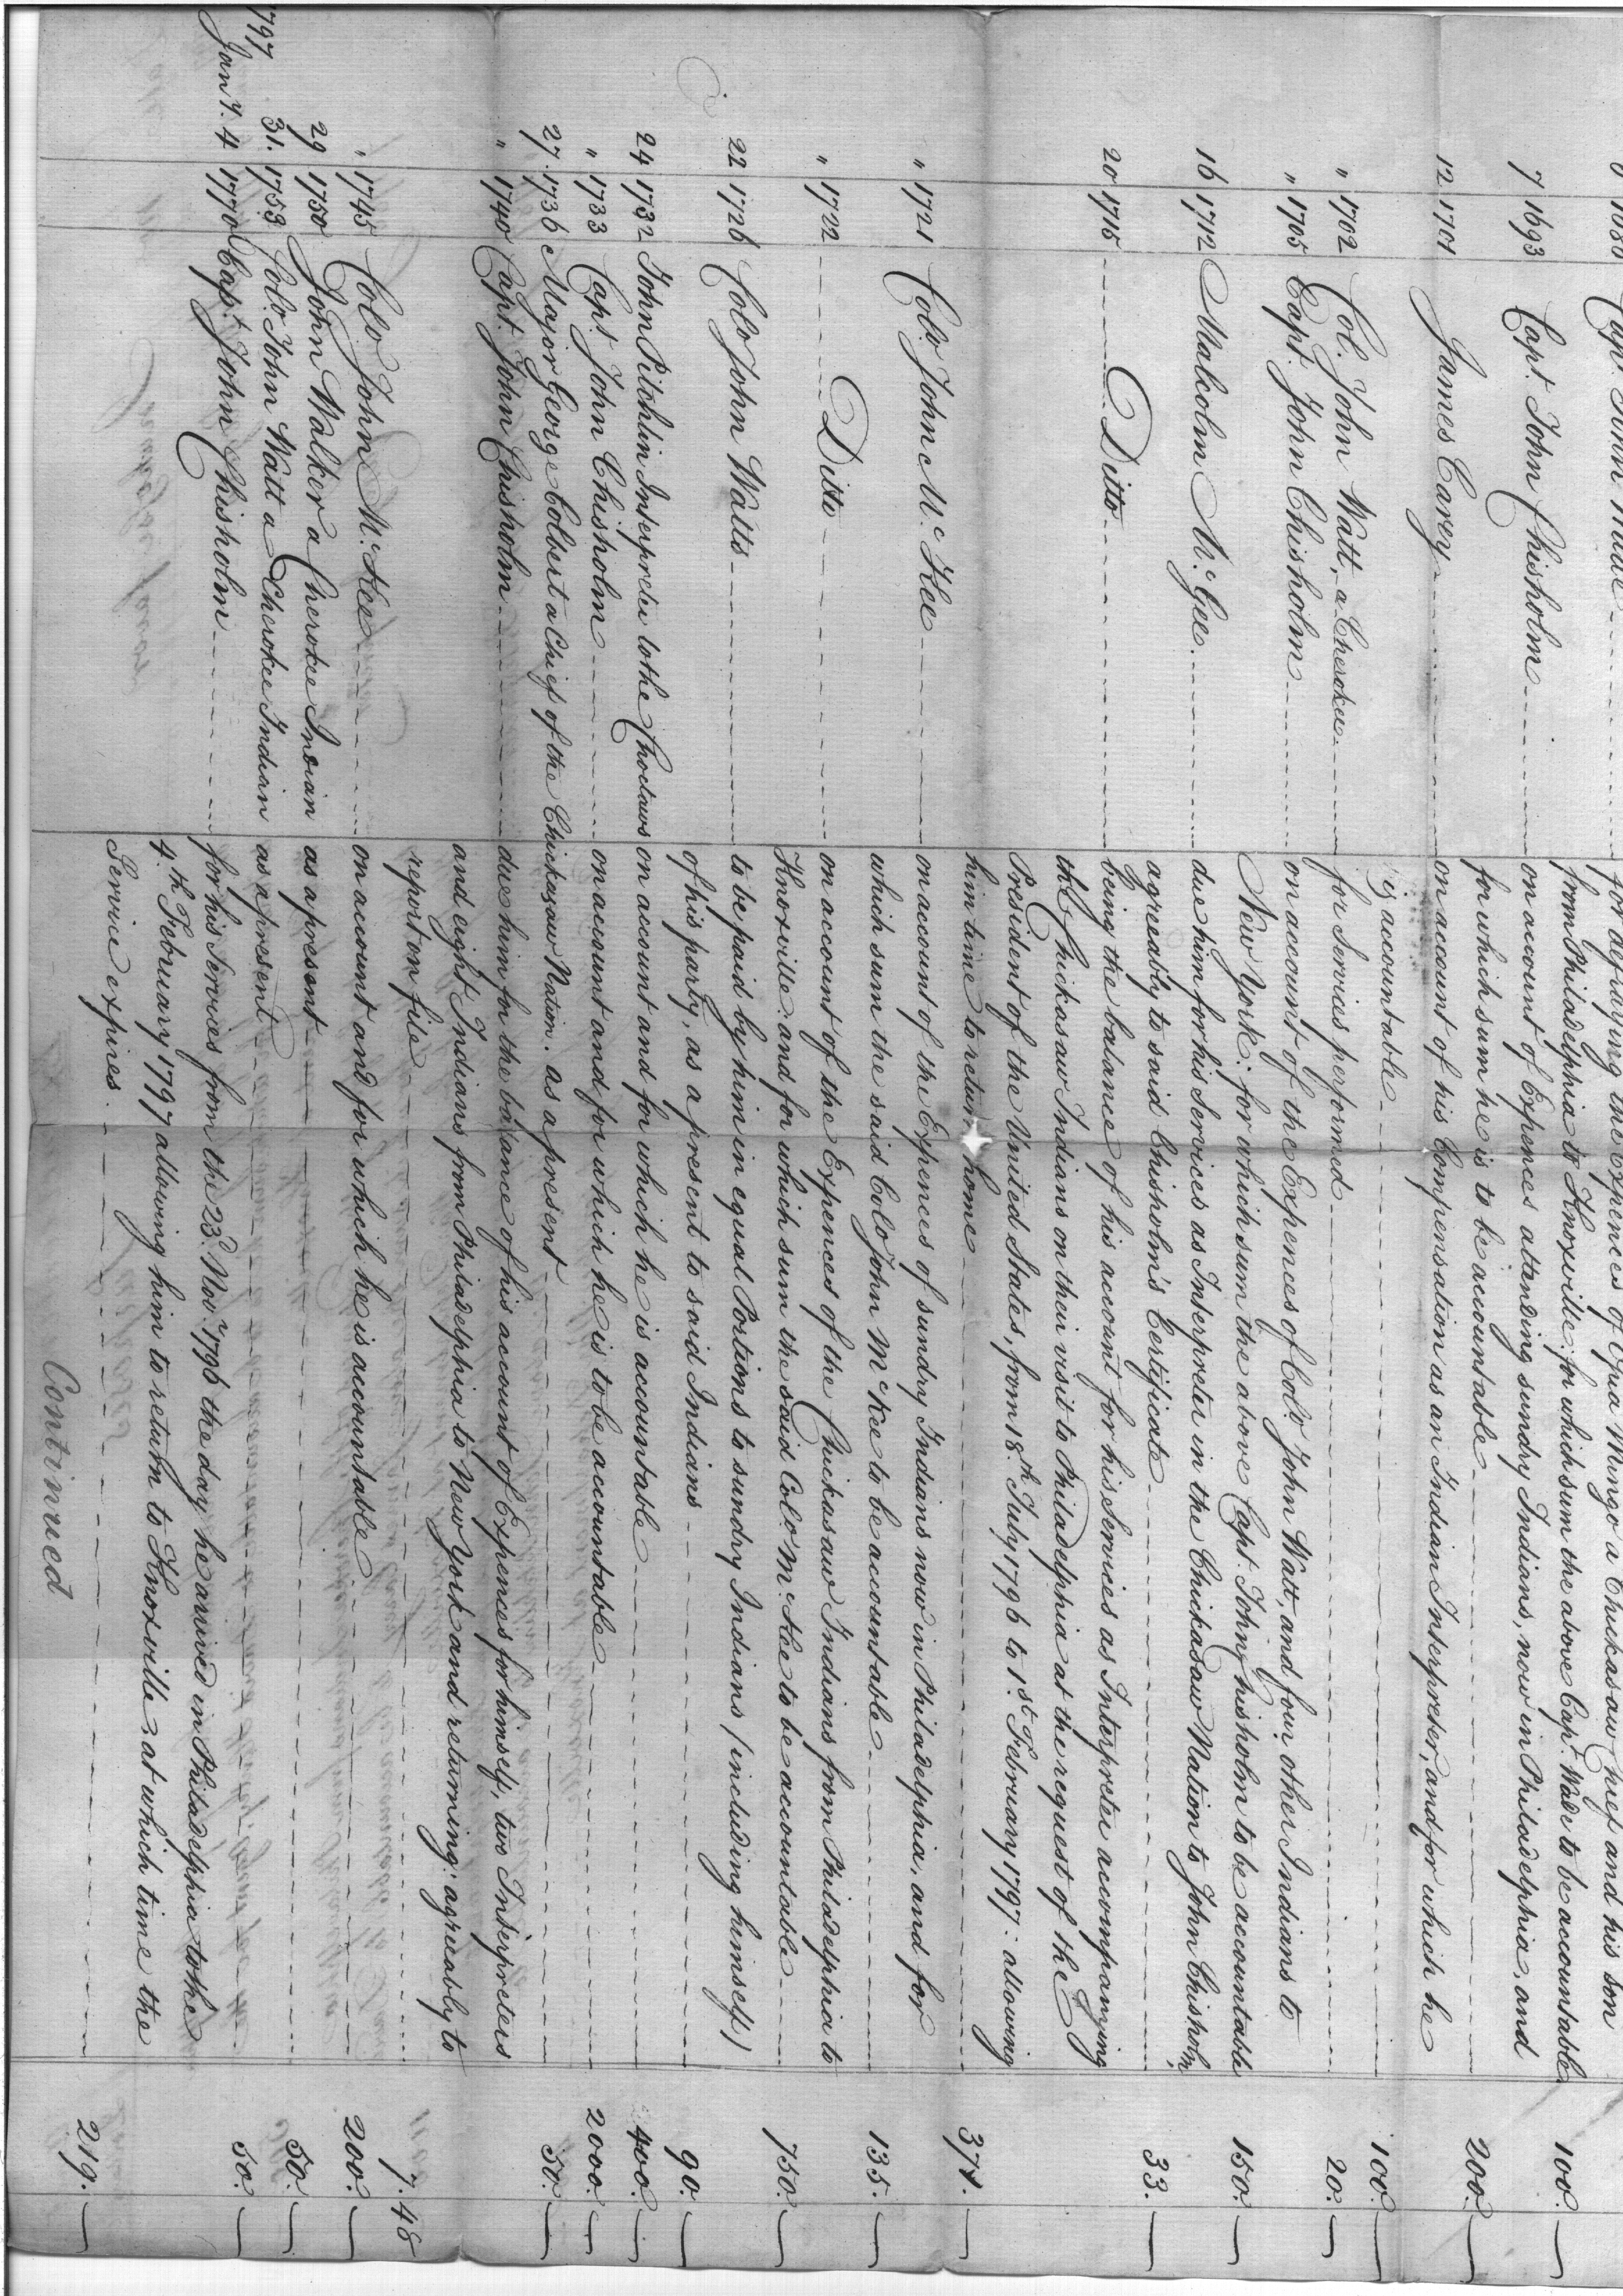 Capt. John Wade for defraying the Expences of Ugula Mingo a Chickasaw Chief and his son
from Philadelphia to Knoxville; for which sum the above Capt. Wade to be accountable 100.
7 1693 Capt. John Chisholm on account of Expences attending sundry Indians, now in Philadelphia, and
for which sum he is to be accountable 200.
12 1701 James Carey on account of his Compensation as an Indian Interpreter, and for which he
is accountable 100.
" 1702 Col. John Watt, a Cherokee for Services performed 20.
" 1705 Capt. John Chisholm on account of the Expences of Colo. John Watt, and four other Indians to
New York; for which sum the above Capt. John Chisholm to be accountable 150.
16 1712 Malcolm Mc. Gee due him for his Services as Interpreter in the Chickasaw Nation to John Chisholm,
agreeably to said Chisholm's Certificate 33.
20 1715 Ditto being the balance of his account for his Services as Interpreter accompanying
the Chickasaw Indians on their visit to Philadelphia at the request of the
President of the United States, from 18th. July 1796 to 1st. February 1797: allowing
him time to return home
" 1721 Colo. John Mc. Kee on account of the Expences of sundry Indians now in Philadelphia, and for
which sum the said Colo John McKee to be accountable 135.
" 1722 Ditto on account of the Expences of the Chickasaw Indians from Philadelphia to
Knoxville: and for which sum the said Colo. Mc. Kee to be accountable 750.
22 1726 Colo John Watts to be paid by him in equal Portions to sundry Indians (including himself)
of his party, as a present to said Indians 90.
24 1732 John Pitchlin Interpreter to the Choctaws on account and for which he is accountable 400.
" 1733 Capt. John Chisholm on account and for which he is to be accountable 2000.
27. 1736 Major George Colbert a Chief of the Chickasaw Nation. as a present 50.
" 1740 Capt. John Chisholm due him for the balance of his account of Expences for himself, two Interpreters
and eight Indians from Philadelphia to New York and returning: agreeably to
report on file 7.48
" 1745 Colo John Mc. Kee on account and for which he is accountable 200.
29 1750 John Walker a Cherokee Indian as a present 50.
31. 1753 Colo. John Watt a Cherokee Indian as a present 50.
1797
Jany. 4 1770 Capt. John Chisholm for his Services from the 23d. Novr. 1796 the day he arrived in Philadelphia to the
4th. February 1797 allowing him to return to Knoxville; at which time the
Service expires 219.
Continued